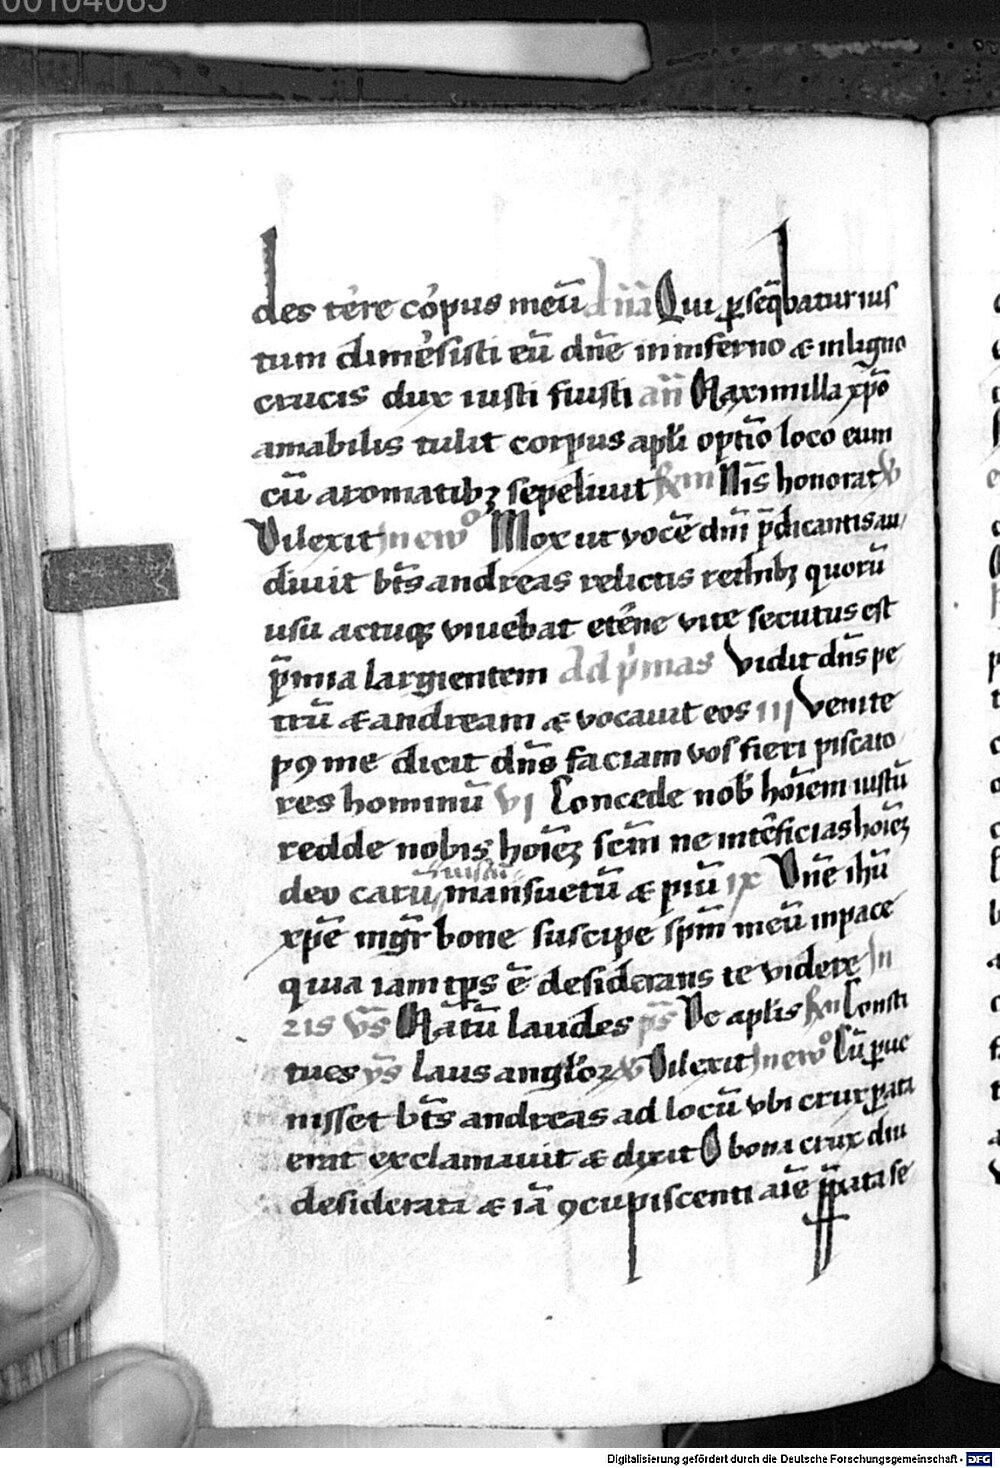 00104065
des tere corpus meū dn̄a Qui p̲seq̄batur ius
tum dimersisti eū dn̄e in inferno & in ligno
crucis dux iusti fuisti an̄ Maximilla xp̄o
amabilis tulit corpus apl̄i optīo loco eum
cū aromatibꝫ sepeliuit N̄is honorat
Dilexit In ewº Mox ut vocē dn̄i p̄dicantis au
diuit bt̄s andreas relictis rethibꝫ quorū
usu actuqꝫ viuebat et̄ne vite secutus est
p̄mia largientem Ad p̄mas Vidit dn̄s pe
trū & andream & vocauit eos III Venite
pꝯ me dicit dn̄s faciam vos fieri piscato
res hominū VI Concede nob̄ hoīem iustū
redde nobis hoīeꝫ scm̄ ne int̄ficias hoīeꝫ
deo carū iustū mansuetū & piū IX Dn̄e ihū
xp̄e mgr̄ bone suscipe sp̄m meū in pace
quia iam tp̄s ē desiderans te videre In
laudes ps̄ De apl̄is Consti
tues vs̄ Laus angl̄oꝝ Dilexit In ewº Cū p̲ue
nisset bt̄s andreas ad locū vbi crux p̲ata
erat exclamauit & dixit O bona crux diu
desiderata & iā ꝯcupiscenti aīe p̄pata se
Digitalisierung gefördert durch die Deutsche Forschungsgemeinschaft - DFG